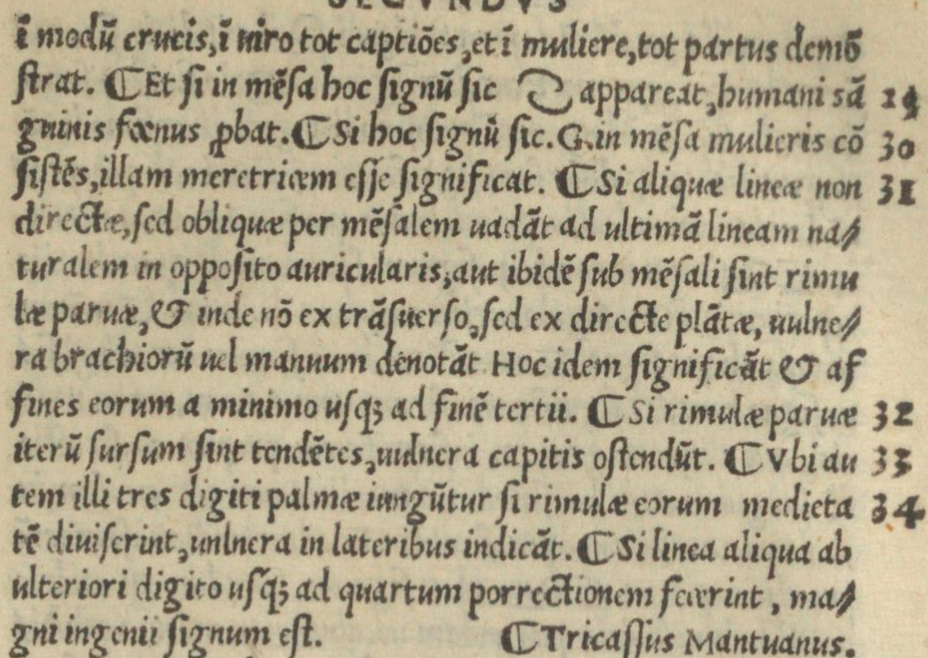 SECVNDVS
ĩ modũ crucis,ĩ uiro tot captiões,et ĩ muliere,tot partus demõ
ſtrat. ⸿Et ſi in mẽſa hoc ſignũ ſic appareat,humani sã 29
guinis fœnus ꝓbat.⸿Si hoc ſignũ ſic.G.in mẽſa mulieris cõ 30
ſiſtẽs,illam meretricem eſſe ſignificat. ⸿Si aliquæ lineæ non 31
directæ,ſed obliquæ per mẽſalem uadãt ad ultimã lineam na/
turalem in oppoſito auricularis,aut ibidẽ ſub mẽſali ſint rimu
læ paruæ,& inde nõ ex trãſuerſo,ſed ex directe plãtæ, uulne/
ra brachiorũ uel manuum denotãt Hoc idem ſignificãt & af
fines eorum a minimo uſq; ad finẽ tertii. ⸿Si rimulæ paruæ 32
iterũ ſurſum ſint tendẽtes,uulnera capitis oſtendũt. ⸿Vbi au 33
tem illi tres digiti palmæ iungũtur ſi rimulæ eorum medieta 34
tẽ diuiſerint,unlnera in lateribus indicãt. ⸿Si linea aliqua ab
ulteriori digito uſq; ad quartum porrectionem fecerint , ma/
gni ingenii ſignum eſt. ⸿Tricaſſus Mantuanus.